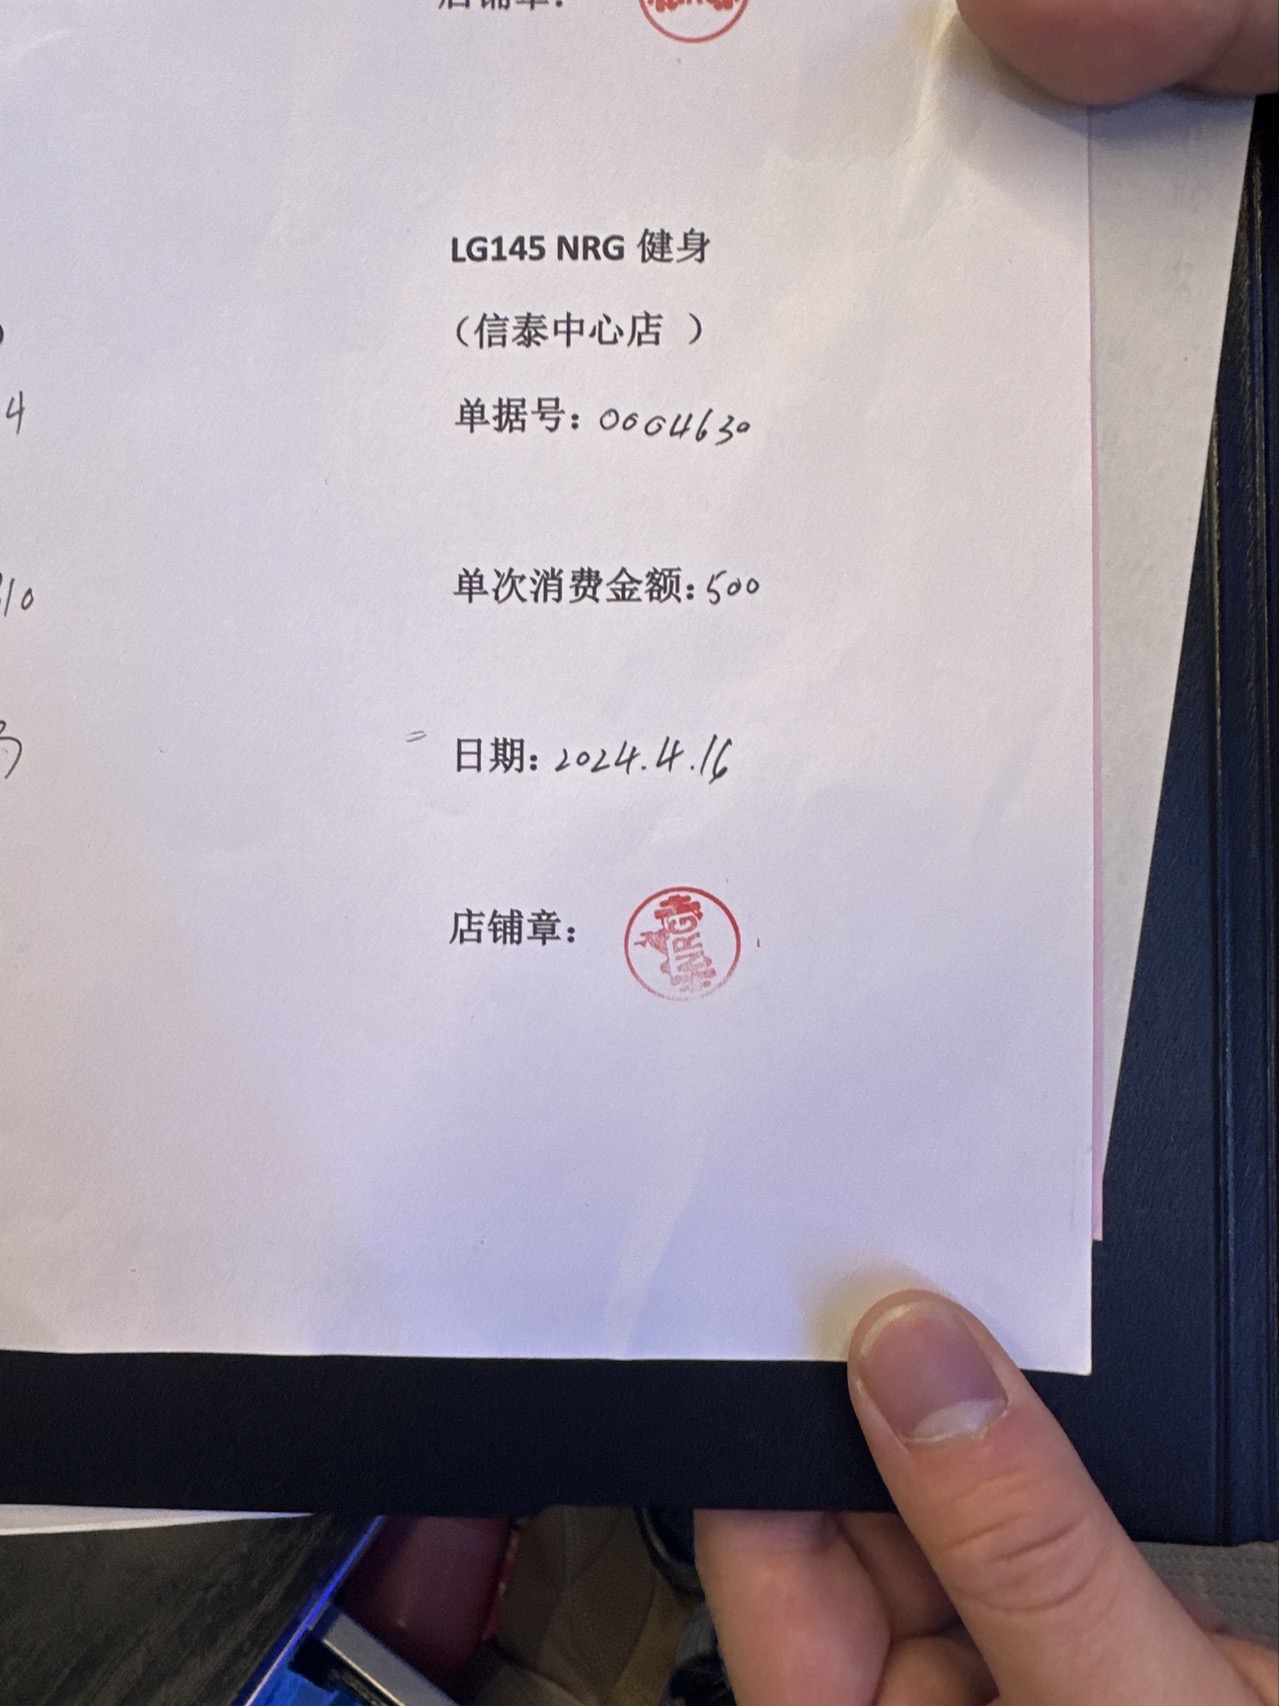 店铺章：
LG145 NRG 健身
（信泰中心店 ）
4
单据号：0004630
310
单次消费金额：500
日期：2024.4.16
店铺章：
NRG